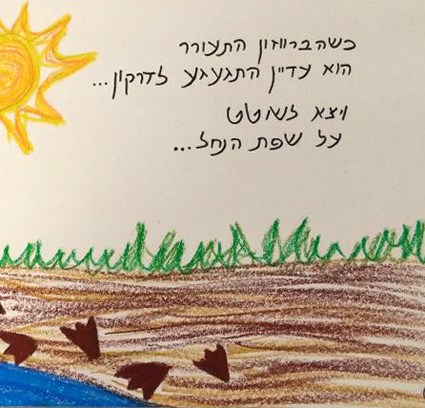 כשהברווזון התעורר
הוא עדיין התגעגע לדרקון...
ויצא לשוטט
על שפת הנחל...